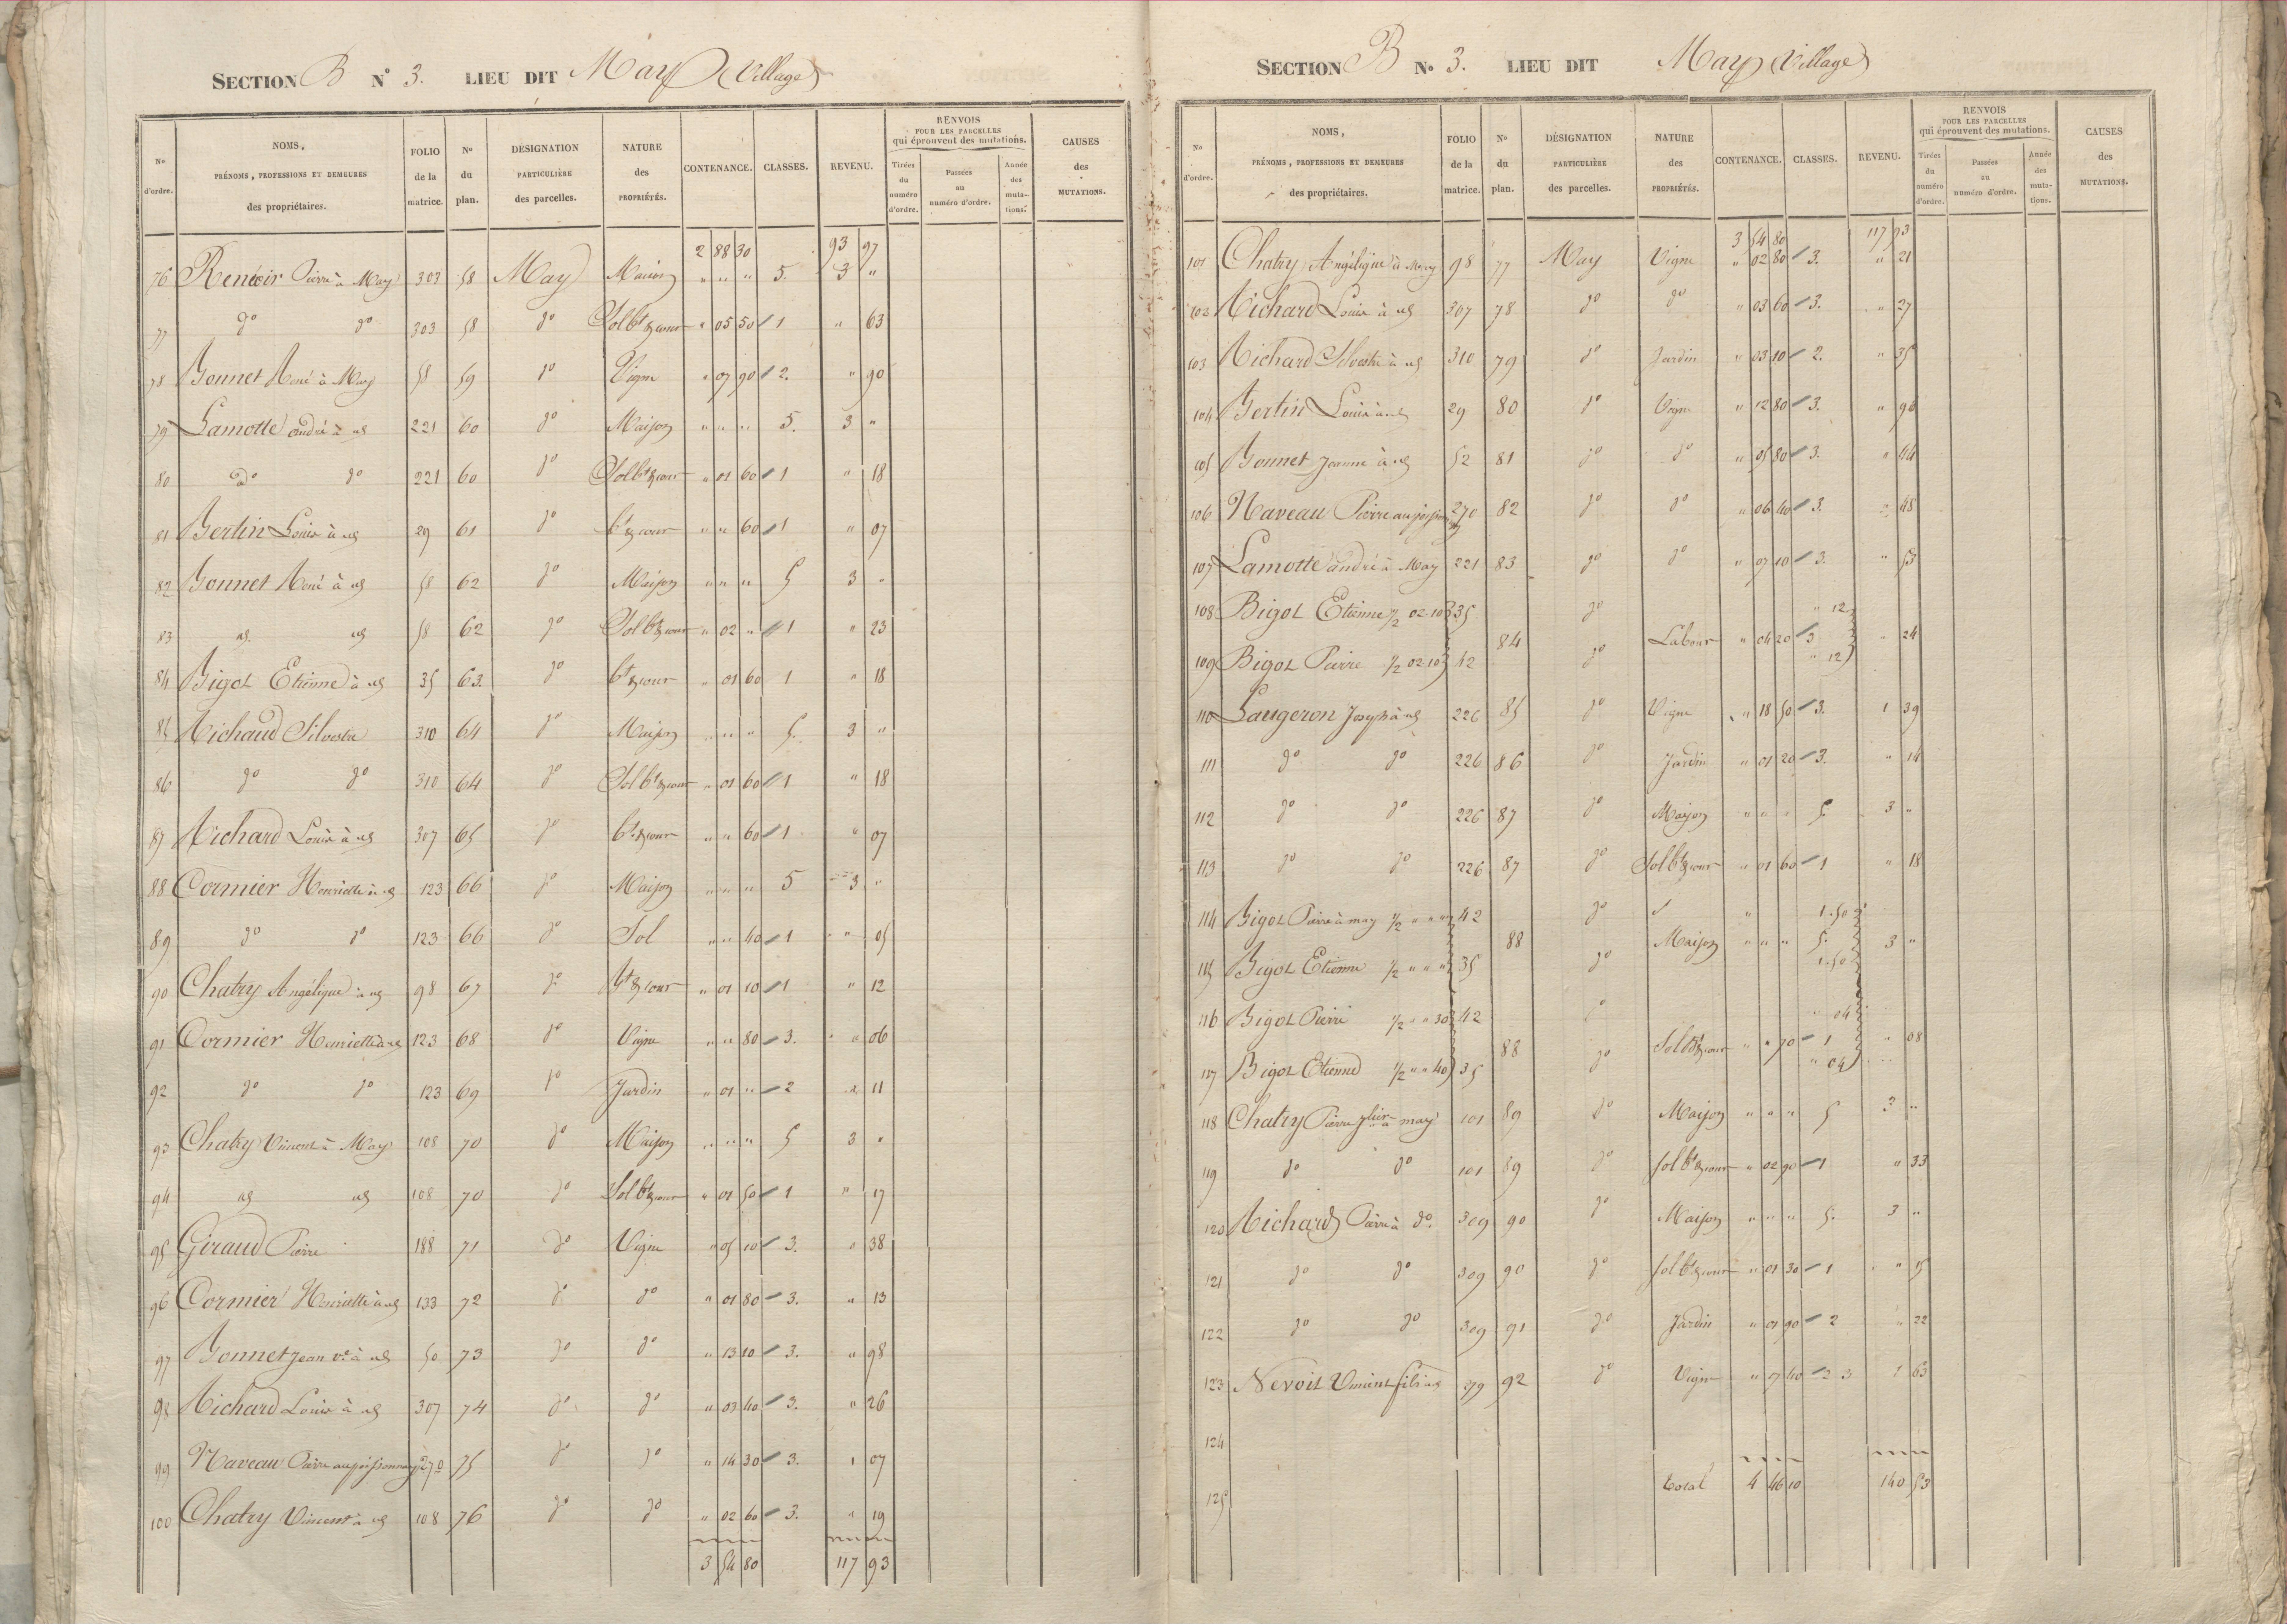 SECTION B N° 3. LIEU DIT May (Village)
N° d'ordre. NOMS, PRÉNOMS, PROFESSIONS ET DEMEURES des propriétaires. FOLIO de la matrice. N° du plan. DÉSIGNATION PARTICULIÈRE des parcelles. NATURE des PROPRIÉTÉS. CONTENANCE. CLASSES. REVENU. RENVOIS POUR LES PARCELLES qui éprouvent des mutations. Tirées du numéro d'ordre. Passées au numéro d'ordre. Année des mutations. CAUSES des MUTATIONS.
2 88 30 93 97
76 Renoir Pierre à May 303 58 May Maison " " " 5. 3 "
77 do do 303 58 do Sol bt & cour " 05 50 1 " 63
78 Bonnet René à May 58 59 do Vigne " 07 90 2. " 90
79 Lamotte andré à id 221 60 do Maison " " " 5. 3 "
80 do do 221 60 do Sol bt & cour " 01 60 1 " 18
81 Bertin Louis à id 29 61 do bt & cour " " 60 1 " 07
82 Bonnet René à id 58 62 do Maison " " " 5 3 "
83 id. id 58 62 do Sol bt & cour " 02 " 1 " 23
84 Bigot Etienne à id 35 63. do bt & cour " 01 60 1 " 18
85 Richard Silvestre 310 64 do Maison " " " 5. 3 "
86 do do 310 64 do Sol bt & cour " 01 60 1 " 18
87 Richard Louis à id 307 65 do bt & cour " " 60 1 " 07
88 Cormier Henriette à id 123 66 do Maison " " " 5 3 "
89 do do 123 66 do Sol " " 40 1 " 05
90 Chatry Angélique à id 98 67 do bt & cour " 01 10 1 " 12
91 Cormier Henriette à id 123 68 do Vigne " " 80 3. " 06
92 do do 123 69 do Jardin " 01 " 2 " 11
93 Chatry Vincent à May 108 70 do Maison " " " 5 3 "
94 id id 108 70 do Sol bt & cour " 01 50 1 " 17
95 Giraud Pierre 188 71 do Vigne " 05 10 3. " 38
96 Cormier Henriette à id 133 72 do do " 01 80 3. " 13
97 Bonnet Jean ve à id 50 73 do do " 13 10 3. " 98
98 Richard Louis à id 307 74 do do " 03 40 3. " 26
99 Naveau Pierre au poissonnay 270 75 do do " 14 30 3. 1 07
100 Chatry Vincent à id 108 76 do do " 02 60 3. " 19
3 54 80 117 93
SECTION B No 3. LIEU DIT May (Village)
No d'ordre. NOMS, PRÉNOMS, PROFESSIONS ET DEMEURES des propriétaires. FOLIO de la matrice. No du plan. DÉSIGNATION PARTICULIÈRE des parcelles. NATURE des PROPRIÉTÉS. CONTENANCE. CLASSES. REVENU. RENVOIS POUR LES PARCELLES qui éprouvent des mutations. Tirées du numéro d'ordre. Passées au numéro d'ordre. Année des mutations. CAUSES des MUTATIONS.
3 54 80 117 93
101 Chatry Angélique à May 98 77 May Vigne " 02 80 3. " 21
102 Richard Louis à id 307 78 do do " 03 60 3. " 27
103 Richard Silvestre à id 310 79 do Jardin " 03 10 2. " 35
104 Bertin Louis à id 29 80 do Vigne " 12 80 3. " 96
105 Bonnet Jeanne à id 52 81 do do " 05 80 3. " 44
106 Naveau Pierre au 270 82 do do " 06 40 3. " 48
107 Lamotte andré à May 221 83 do do " 07 10 3. " 53
108 Bigot Etienne 1/2 02 10 35 do " 12
84 Labour " 04 20 3 " 24
109 Bigot Pierre 1/2 02 10 42 do " 12
110 Laugeron Joseph à id 226 85 do Vigne " 18 50 3. 1 39
111 do do 226 86 do Jardin " 01 20 3. " 14
112 do do 226 87 do Maison " " " 5. 3 "
113 do do 226 87 do Sol bt & cour " 01 60 1 " 18
114 Bigot Pierre à may 1/2 " " " 42 do 1.50
88 Maison " " " 5. 3 "
115 Bigot Etienne 1/2 " " " 35 do 1.50
116 Bigot Pierre 1/2 " " 30 42 " 04
88 Sol Bt & cour " " 70 1 " 08
117 Bigot Etienne 1/2 " " 40 35 do " 04
118 Chatry Pierre à may 101 89 do Maison " " " 5 3 "
119 do do 101 89 do sol bt & cour " 02 90 1 " 33
120 Richard Pierre à do. 309 90 do Maison " " " 5. 3 "
121 do do 309 90 do sol bt & cour " 01 30 1 " 15
122 do do 309 91 do Jardin " 01 90 2 " 22
123 Nevoit Vincent fils à id 92 do Vigne 40 2 3 63
124
125 total 4 46 10 140 53